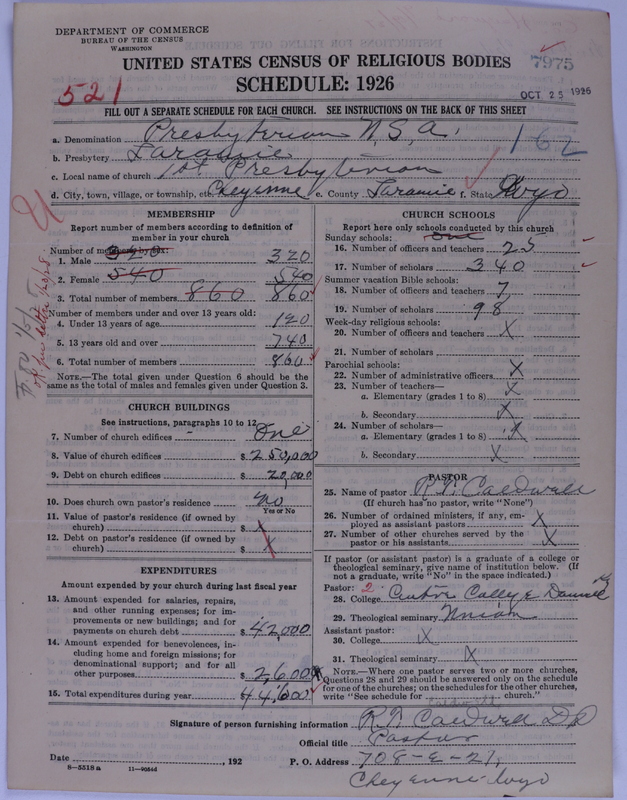 DEPARTMENT OF COMMERCE
BUREAU OF THE CENSUS
WASHINGTON
UNITED STATES CENSUS OF RELIGIOUS BODIES
7975
SCHEDULE: 1926
521
OCT 25 1926
FILL OUT A SEPARATE SCHEDULE FOR EACH CHURCH. SEE INSTRUCTIONS ON THE BACK OF THIS SHEET
a. Denomination Presbyterian U.S.A.
162
b. Presbytery Laramie
c. Local name of church 1st Presbyterian
d. City, town, village, or township, etc. Cheyenne e. County Laramie f. State Wyo
MEMBERSHIP
Report number of members according to definition of member in your church
Number of members by sex:
1. Male 320 320
2. Female 540 540
3. Total number of members 860 860
Number of members under and over 13 years old:
4. Under 13 years of age 120
5. 13 years old and over 740
6. Total number of members 860
NOTE.—The total given under Question 6 should be the same as the total of males and females given under Question 3.
CHURCH BUILDINGS
See instructions, paragraphs 10 to 12
7. Number of church edifices One
8. Value of church edifices $ 250,000
9. Debt on church edifices $ 20,000
10. Does church own pastor's residence No
Yes or No
11. Value of pastor's residence (if owned by church) $ X
12. Debt on pastor's residence (if owned by church) $ X
EXPENDITURES
Amount expended by your church during last fiscal year
13. Amount expended for salaries, repairs, and other running expenses; for improvements or new buildings; and for payments on church debt $ 42,000
14. Amount expended for benevolences, including home and foreign missions; for denominational support; and for all other purposes $ 2,600
15. Total expenditures during year $ 44,600
CHURCH SCHOOLS
Report here only schools conducted by this church
Sunday schools: one
16. Number of officers and teachers 25
17. Number of scholars 340
Summer vacation Bible schools:
18. Number of officers and teachers 7
19. Number of scholars 98
Week-day religious schools:
20. Number of officers and teachers X
21. Number of scholars
Parochial schools:
22. Number of administrative officers X
23. Number of teachers—
a. Elementary (grades 1 to 8) X
b. Secondary X
24. Number of scholars—
a. Elementary (grades 1 to 8) X
b. Secondary X
PASTOR
25. Name of pastor R.T. Caldwell
(If church has no pastor, write "None")
26. Number of ordained ministers, if any, employed as assistant pastors X
27. Number of other churches served by the pastor or his assistants X
If pastor (or assistant pastor) is a graduate of a college or theological seminary, give name of institution below. (If not a graduate, write "No" in the space indicated.)
Pastor: 2
28. College Centre College Danville Ky
29. Theological seminary Union
Assistant pastor:
30. College X
31. Theological seminary X
NOTE.—Where one pastor serves two or more churches, Questions 28 and 29 should be answered only on the schedule for one of the churches; on the schedules for the other churches, write "See schedule for church."
Signature of person furnishing information R.T. Caldwell DD
Official title Pastor
Date , 192 P. O. Address 708-E-21,
8-5518a 11-9056d Cheyenne Wyo